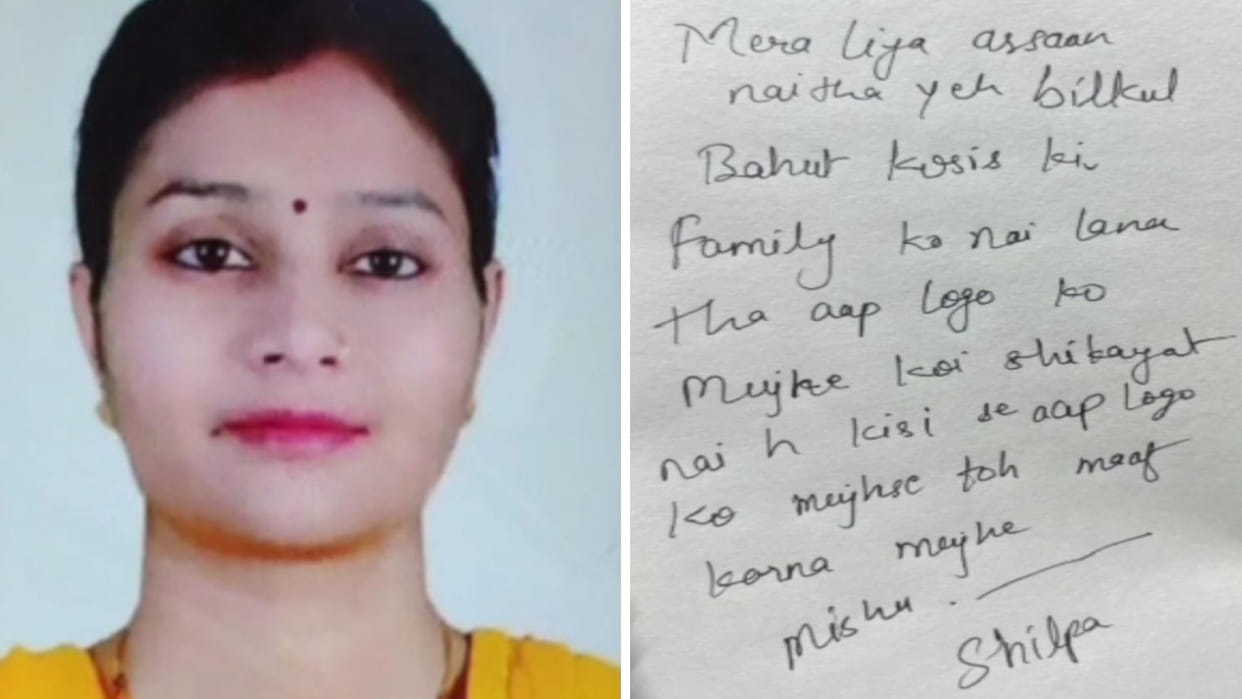 Mera liya assaan
naitha yeh bilkul
Bahut kosis ki
family ko nai lana
tha aap logo ko
Mujhe koi shikayat
nai h kisi se aap logo
ko mujhse toh maaf
karna mujhe
Mishu.
Shilpa